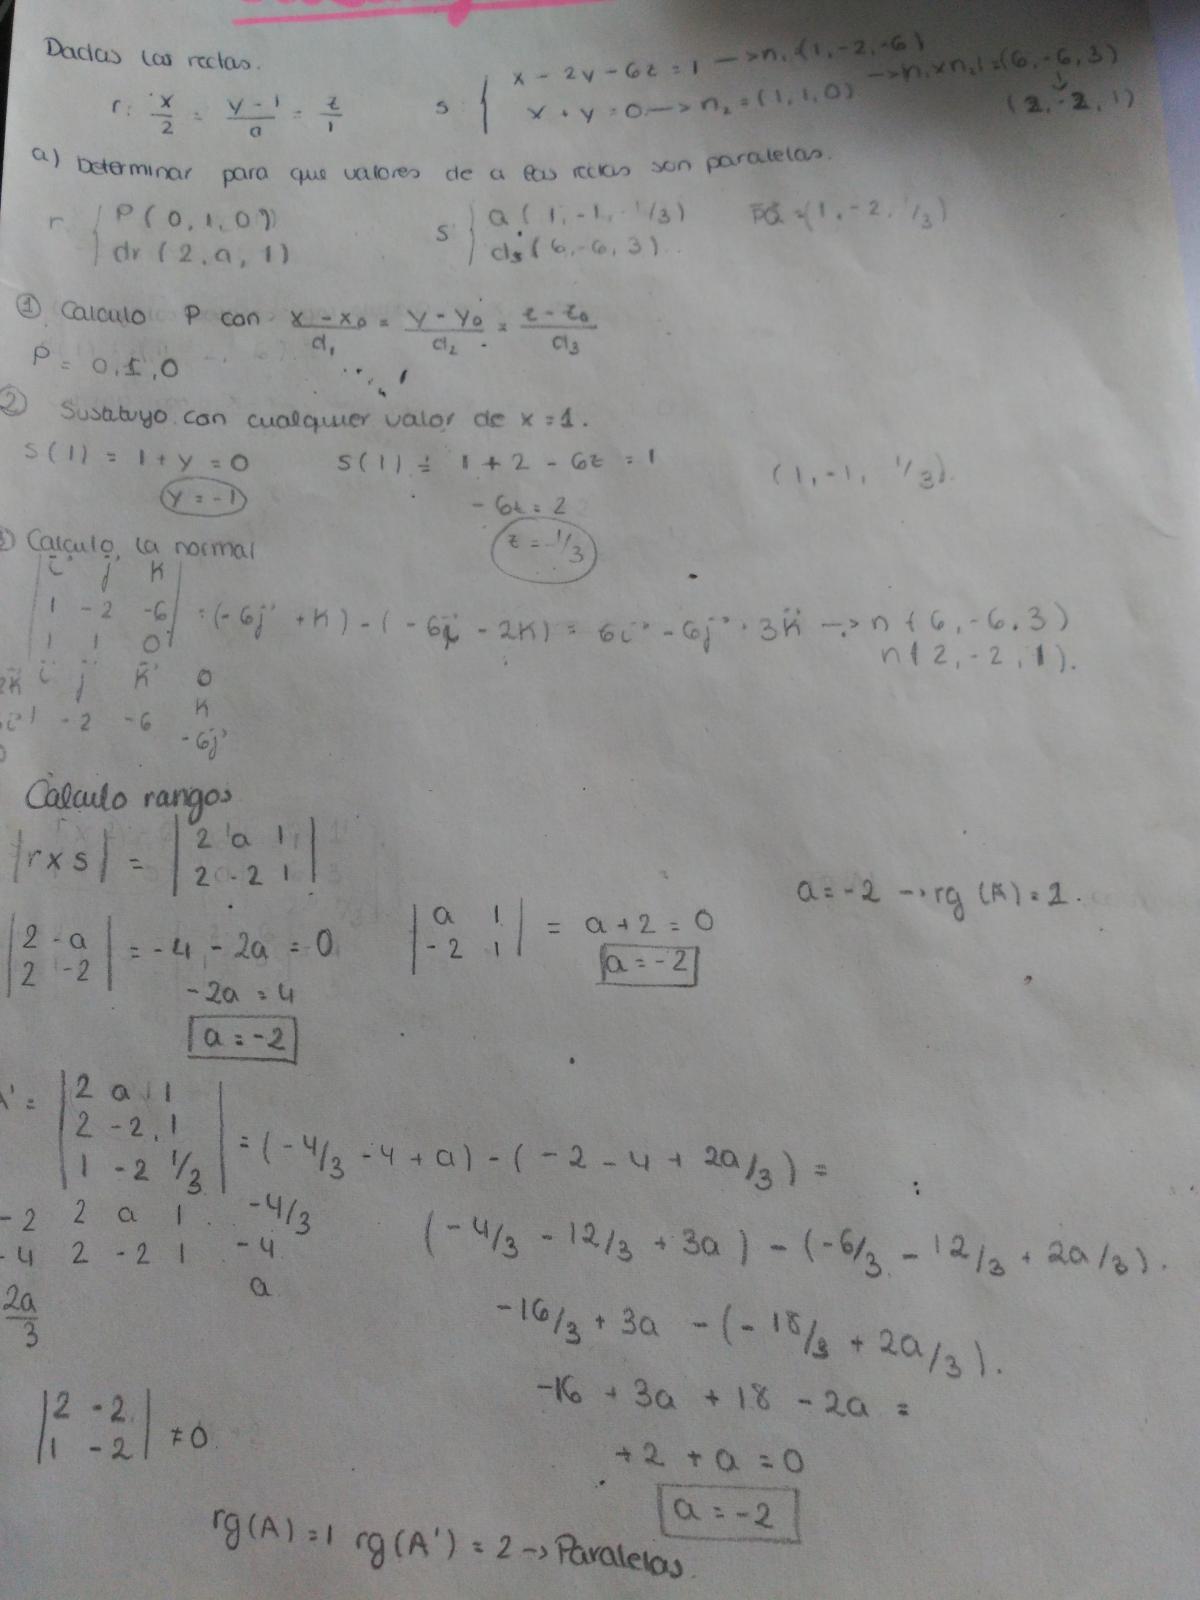 Dadas las rectas.
r: x/2 = y-1/a = z/1
s: { x - 2y - 6z = 1 —> n₁(1,-2,-6)
x + y = 0 —> n₂ = (1,1,0) —> n₁xn₂ = (6,-6,3)
(2,-2,1)
a) Determinar para que valores de a las rectas son paralelas.
r { P(0,1,0)
dr(2,a,1)
s { a(1,-1,-1/3)
ds(6,-6,3)
PQ = (1,-2,1/3)
① Calculo P con x-x₀/d₁ = y-y₀/d₂ = z-z₀/d₃
P = 0,1,0
② Sustituyo con cualquier valor de x=1.
s(1) = 1+y=0 s(1) = 1+2-6z=1 (1,-1, 1/3).
y=-1 -6z=2
z=-1/3
Calculo la normal
|i j k|
|1 -2 -6| = (-6j+k)-(-6i-2k) = 6i-6j+3k —> n(6,-6,3)
|1 1 0| n(2,-2,1).
2k i j k 0
1 -2 -6 k
-6j
Cálculo rangos
|rxs| = |2 a 1|
|2 -2 1|
a=-2 —> rg(A)=1.
|2 -a|
|2 -2| = -4-2a=0
-2a=4
a=-2
|a 1|
|-2 1| = a+2=0
a=-2
A' = |2 a 1|
|2 -2 1|
|1 -2 1/3| = (-4/3-4+a)-(-2-4+2a/3) =
-2 2 a 1 -4/3
-4 2 -2 1 -4
2a/3 a
(-4/3-12/3+3a)-(-6/3-12/3+2a/3).
-16/3+3a-(-18/3+2a/3).
-16+3a+18-2a=
+2+a=0
a=-2
|2 -2|
|1 -2| ≠0
rg(A)=1 rg(A')=2 —> Paralelas.